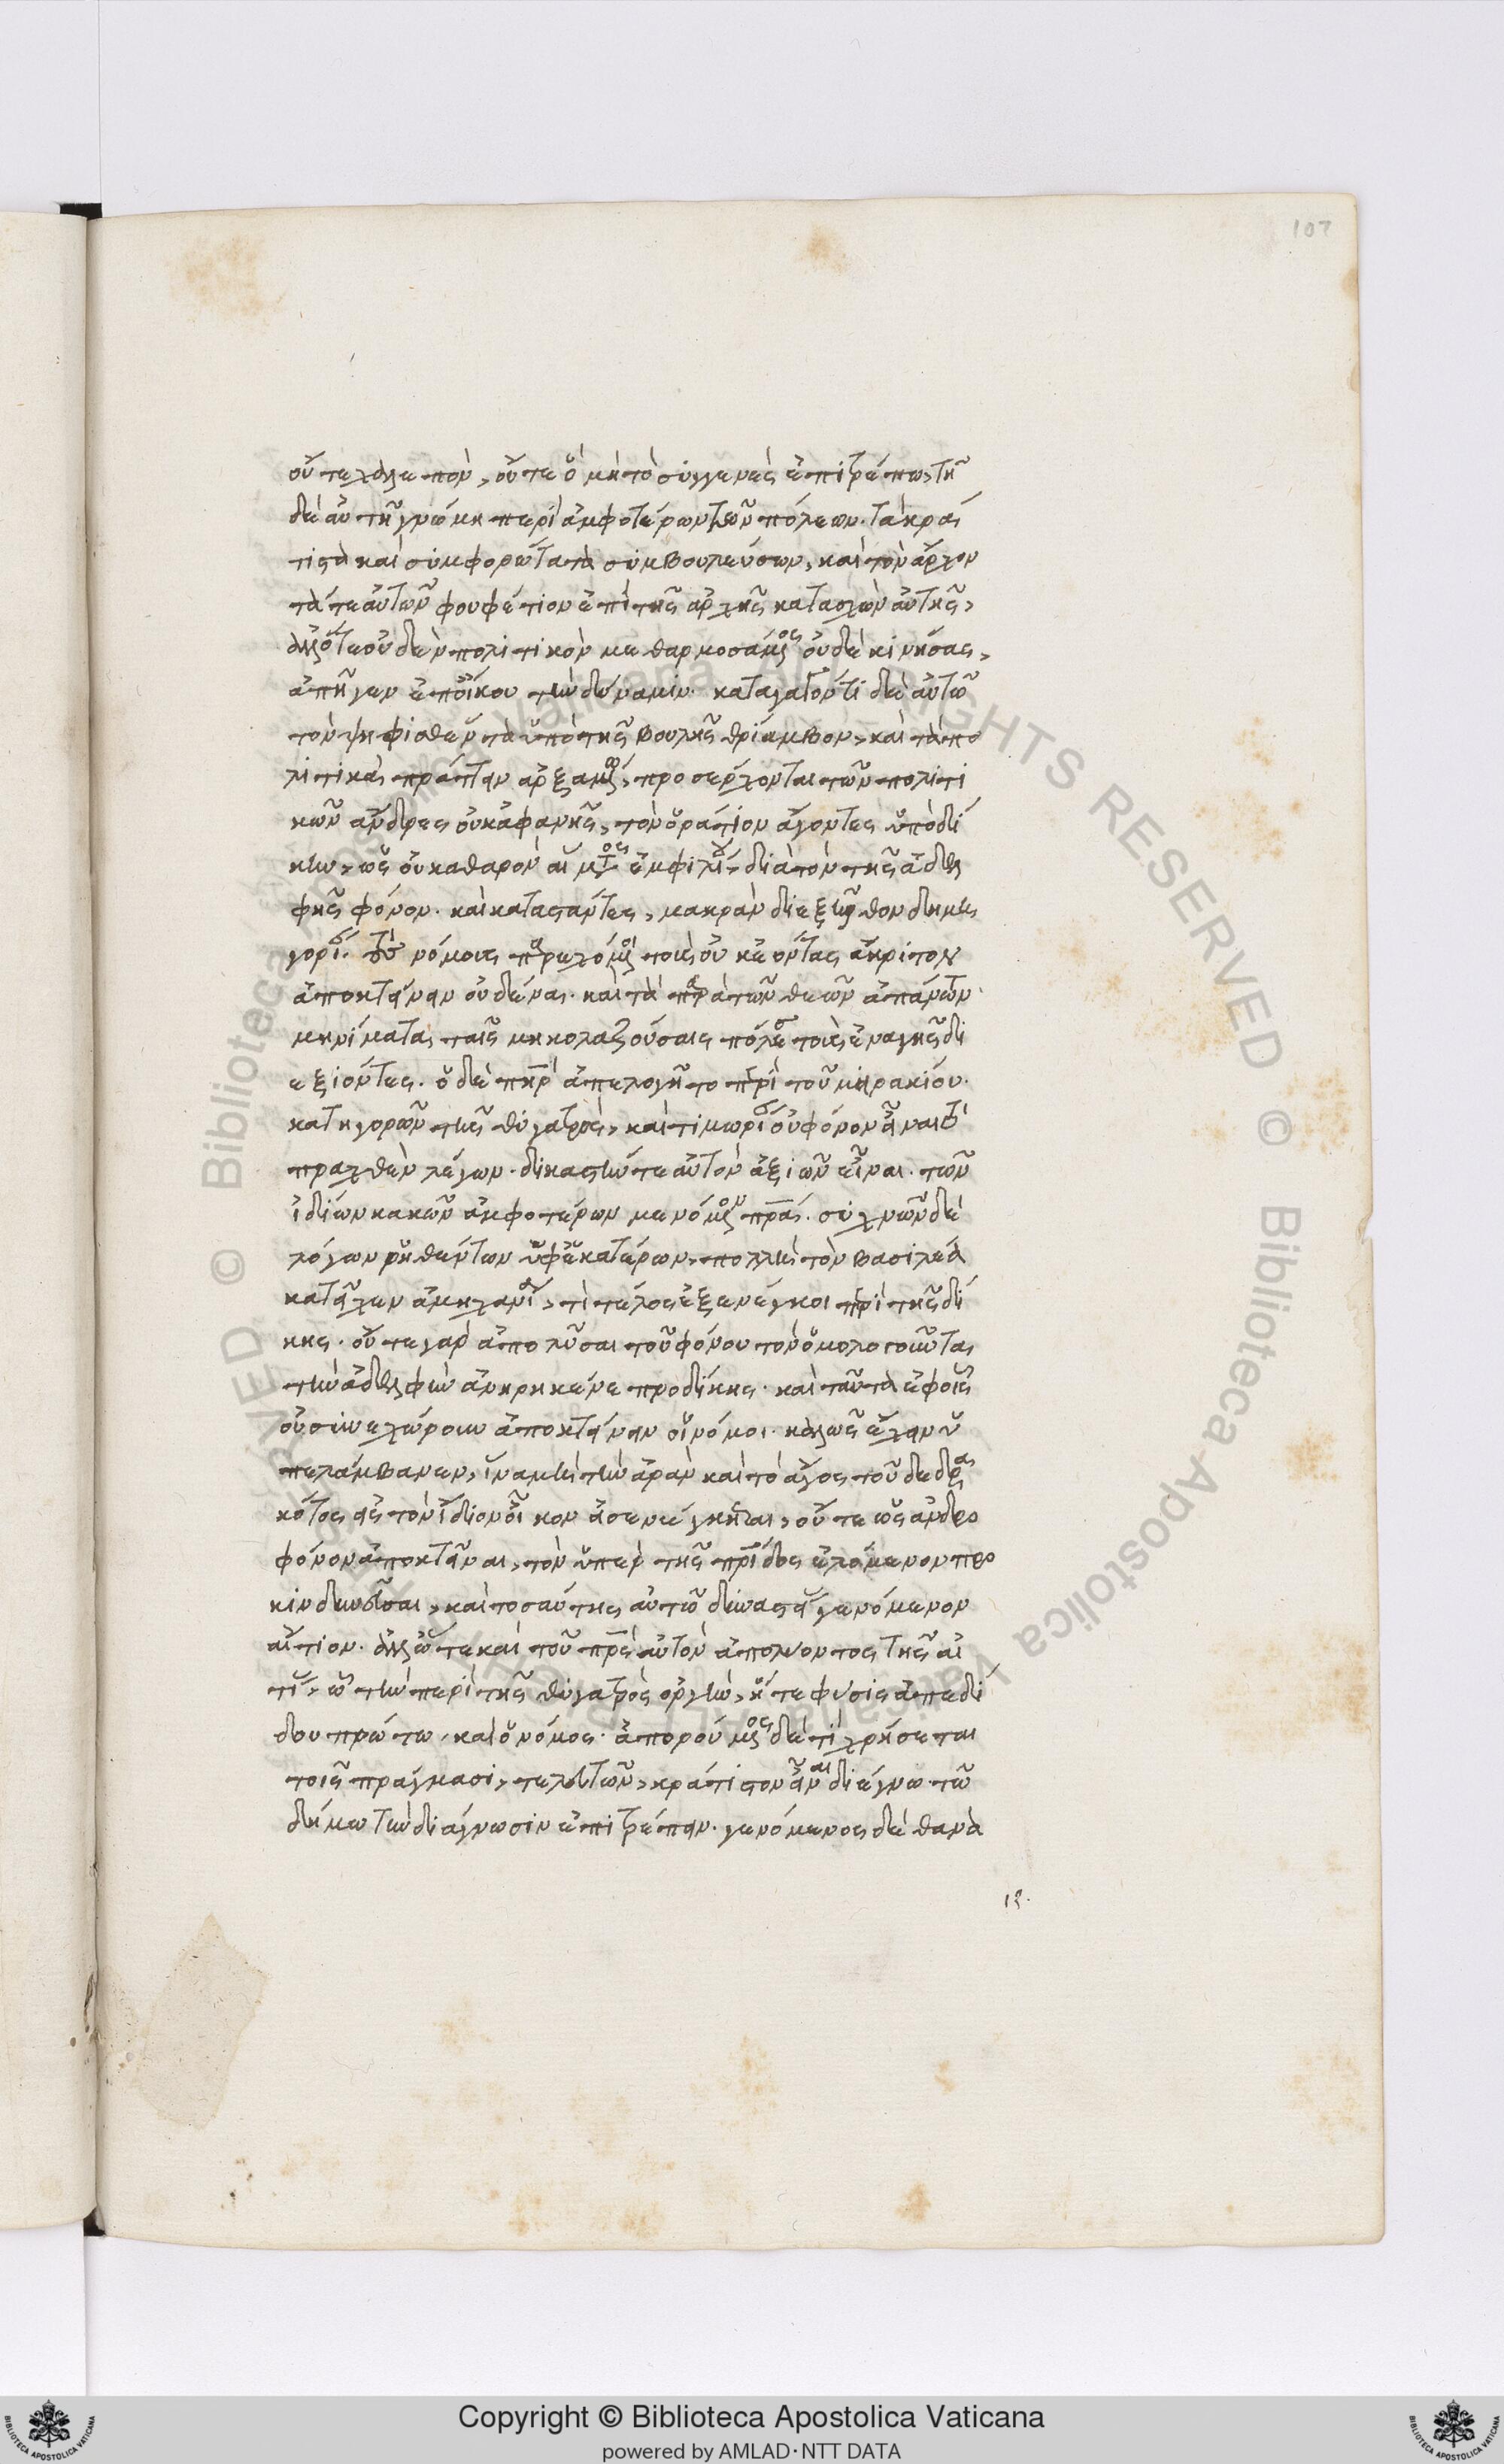 οὔτε χαλεπὸν, οὔτε ὃ μὴ τὸ συγγενὲς ἐπιτρέπω, τῇ
δὲ αὐτῇ γνώμῃ περὶ ἀμφοτέρων τῶν πόλεων. τὰ κρά
τιστα καὶ συμφορώτατα συμβουλεύσων, καὶ τὸν ἄρχον
τά τε αὐτῶν φουφέτιον ἐπὶ τῆς ἀρχῆς κατασχὼν αὐτῆς,
ἄλλό τε οὐδὲν πολιτικὸν μεθαρμοσάμος οὐδὲ κινήσας,
ἀπῆγεν ἐπ' οἴκου τὴν δύναμιν. καταγαγόντι δὲ αὐτῷ
τὸν ψηφισθέντα ὑπὸ τῆς βουλῆς θρίαμβον, καὶ τὰ πο
λιτικὰ πράττειν ἀρξαμω, προσέρχονται τῶν πολιτι
κῶν ἄνδρες οὐκ ἀφανεῖς, τὸν ὁράτιον ἄγοντες ὑπὸ δί
κην, ὡς οὐ καθαρὸν αἵμτος ἐμφυλί, διὰ τὸν τῆς ἀδελ
φῆς φόνον. καὶ καταστάντες, μακρὰν διεξῆλθον δημη
γορί. τοὺς νόμους παρεχόμοι τοὺς οὐκ ἐῶντας ἄκριτον
ἀποκτείνειν οὐδένα. καὶ τὰ παρὰ τῶν θεῶν ἁπάντων
μηνίματα, ταῖς μὴ κολαζούσαις πόλεσι τοὺς ἐναγεῖς δι
εξιόντες. ὁ δὲ πηρ ἀπελογεῖτο περὶ τοῦ μειρακίου.
κατηγορῶν τῆς θυγατρὸς, καὶ τιμωρί οὐ φόνον εἶναι τὸ
πραχθὲν λέγων. δικαστήν τε αὐτὸν ἀξιῶν εἶναι. τῶν
ἰδίων κακῶν ἀμφοτέρων γενόμον πρα. συχνῶν δὲ
λόγων ῥηθέντων ὑφ' ἑκατέρων, πολλὴ τὸν βασιλέα
κατεῖχεν ἀμηχανί, τί τέλος ἐξενέγκοι περὶ τῆς δί
κης. οὔτε γὰρ ἀπολῦσαι τοῦ φόνου τὸν ὁμολογοῦντα
τὴν ἀδελφὴν ἀνῃρηκέναι πρὸ δίκης. καὶ ταῦτα ἐφ' οἷς
οὐ συνεχώρουν ἀποκτείνειν οἱ νόμοι. καλῶς ἔχειν ὑ
πελάμβανεν, ἵνα μὴ τὴν ἀρὰν καὶ τὸ ἄγος τοῦ δεδρα
κότος εἰς τὸν ἴδιον οἶκον εἰσενέγκηται, οὔτε ὡς ἀνδρο
φόνον ἀποκτεῖναι, τὸν ὑπὲρ τῆς πρίδος ἑλόμενον προ
κινδυνεῦσαι, καὶ τοσαύτης αὐτῷ δυναστεί γενόμενον
αἴτιον. ἄλλως τε καὶ τοῦ πρς αὐτὸν ἀπολύοντος τῆς αἰ
τί, ᾧ τὴν περὶ τῆς θυγατρὸς ὀργὴν, ἥ τε φύσις ἀπεδί
δου πρώτω, καὶ ὁ νόμος. ἀπορούμος δὲ τί χρήσεται
τοῖς πράγμασι, τελευτῶν, κράτιστον εἶναι διέγνω. τῷ
δήμω τὴν διάγνωσιν ἐπιτρέπειν. γενόμενος δὲ θανα
107
Copyright © Biblioteca Apostolica Vaticana
powered by AMLAD·NTT DATA